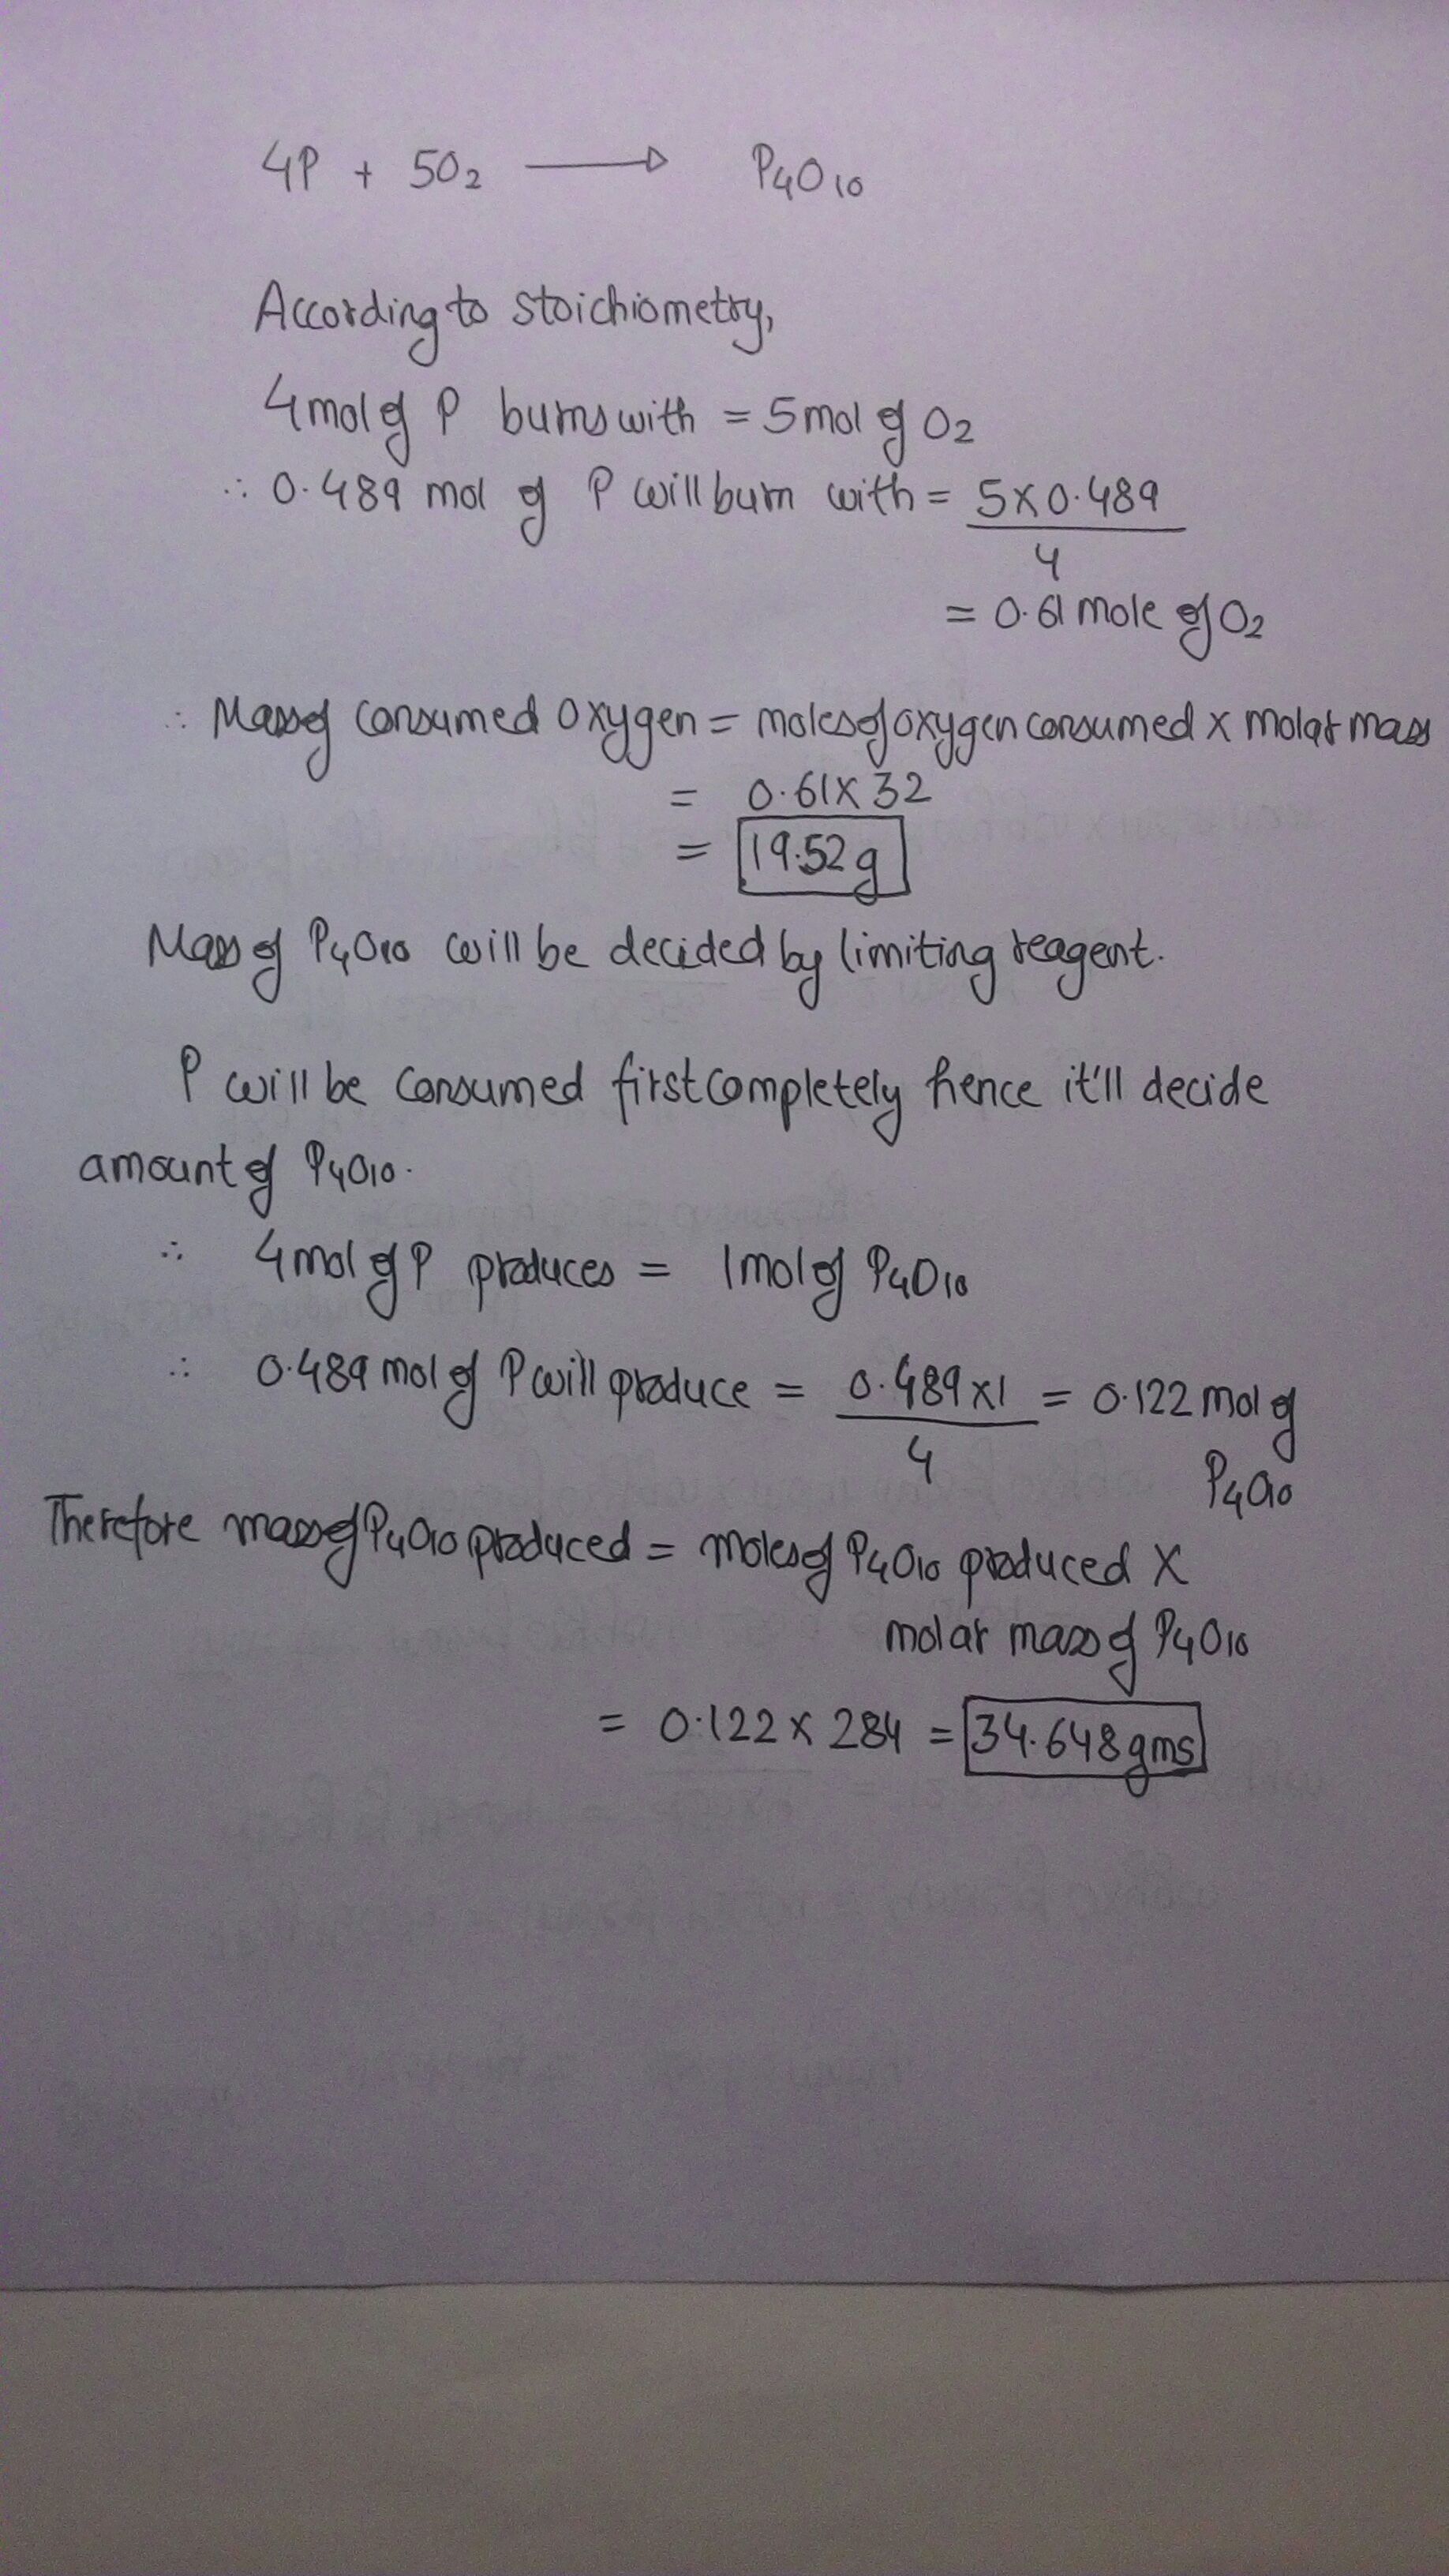 4P + 5O₂ → P₄O₁₀
According to stoichiometry,
4 mol of P burns with = 5 mol of O₂
∴ 0.489 mol of P will burn with = 5 × 0.489
4
= 0.61 mole of O₂
∴ Mass of consumed oxygen = moles of oxygen consumed × molar mass
= 0.61 × 32
= 19.52 g
Mass of P₄O₁₀ will be decided by limiting reagent.
P will be consumed first completely hence it'll decide
amount of P₄O₁₀.
∴ 4 mol of P produces = 1 mol of P₄O₁₀
∴ 0.489 mol of P will produce = 0.489 × 1 = 0.122 mol of
4
P₄O₁₀
Therefore mass of P₄O₁₀ produced = moles of P₄O₁₀ produced ×
molar mass of P₄O₁₀
= 0.122 × 284 = 34.648 gms